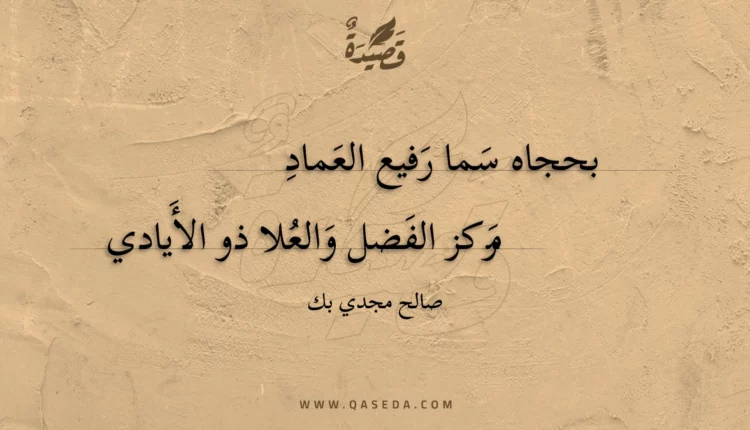 قَصِيدَةٌ
بحجاه سَما رَفيع العَمادِ
مَركز الفَضل وَالعُلا ذو الأَيادي
صالح مجدي بك
WWW.QASEDA.COM